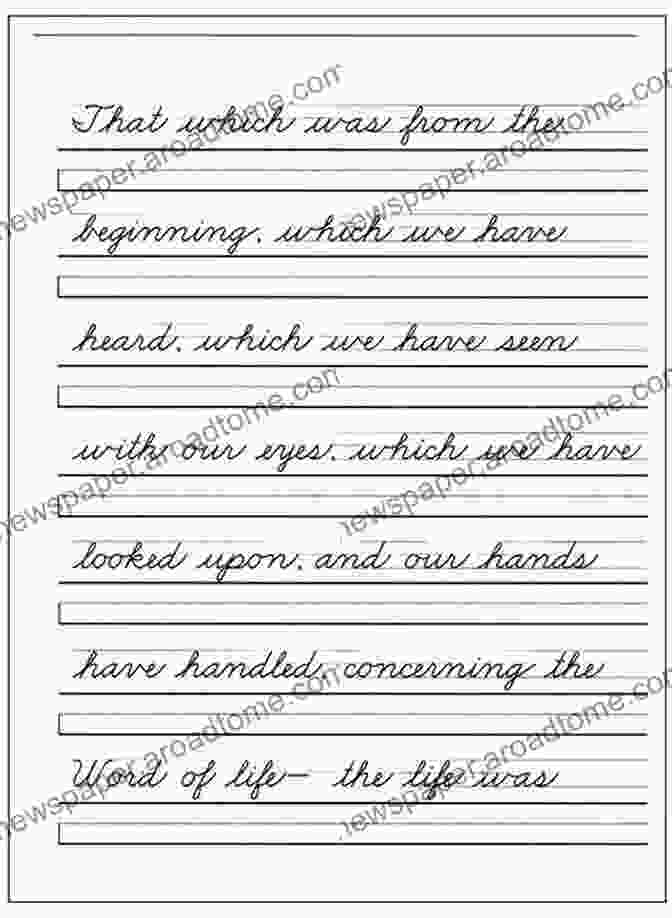 That which was from the
beginning, which we have
heard, which we have seen
with our eyes, which we have
looked upon, and our hands
have handled, concerning the
Word of life— the life was
newspaper.aroadtome.com
newspaper.aroadtome.com
newspaper.aroadtome.com
newspaper.aroadtome.com
newspaper.aroadtome.com
newspaper.aroadtome.com